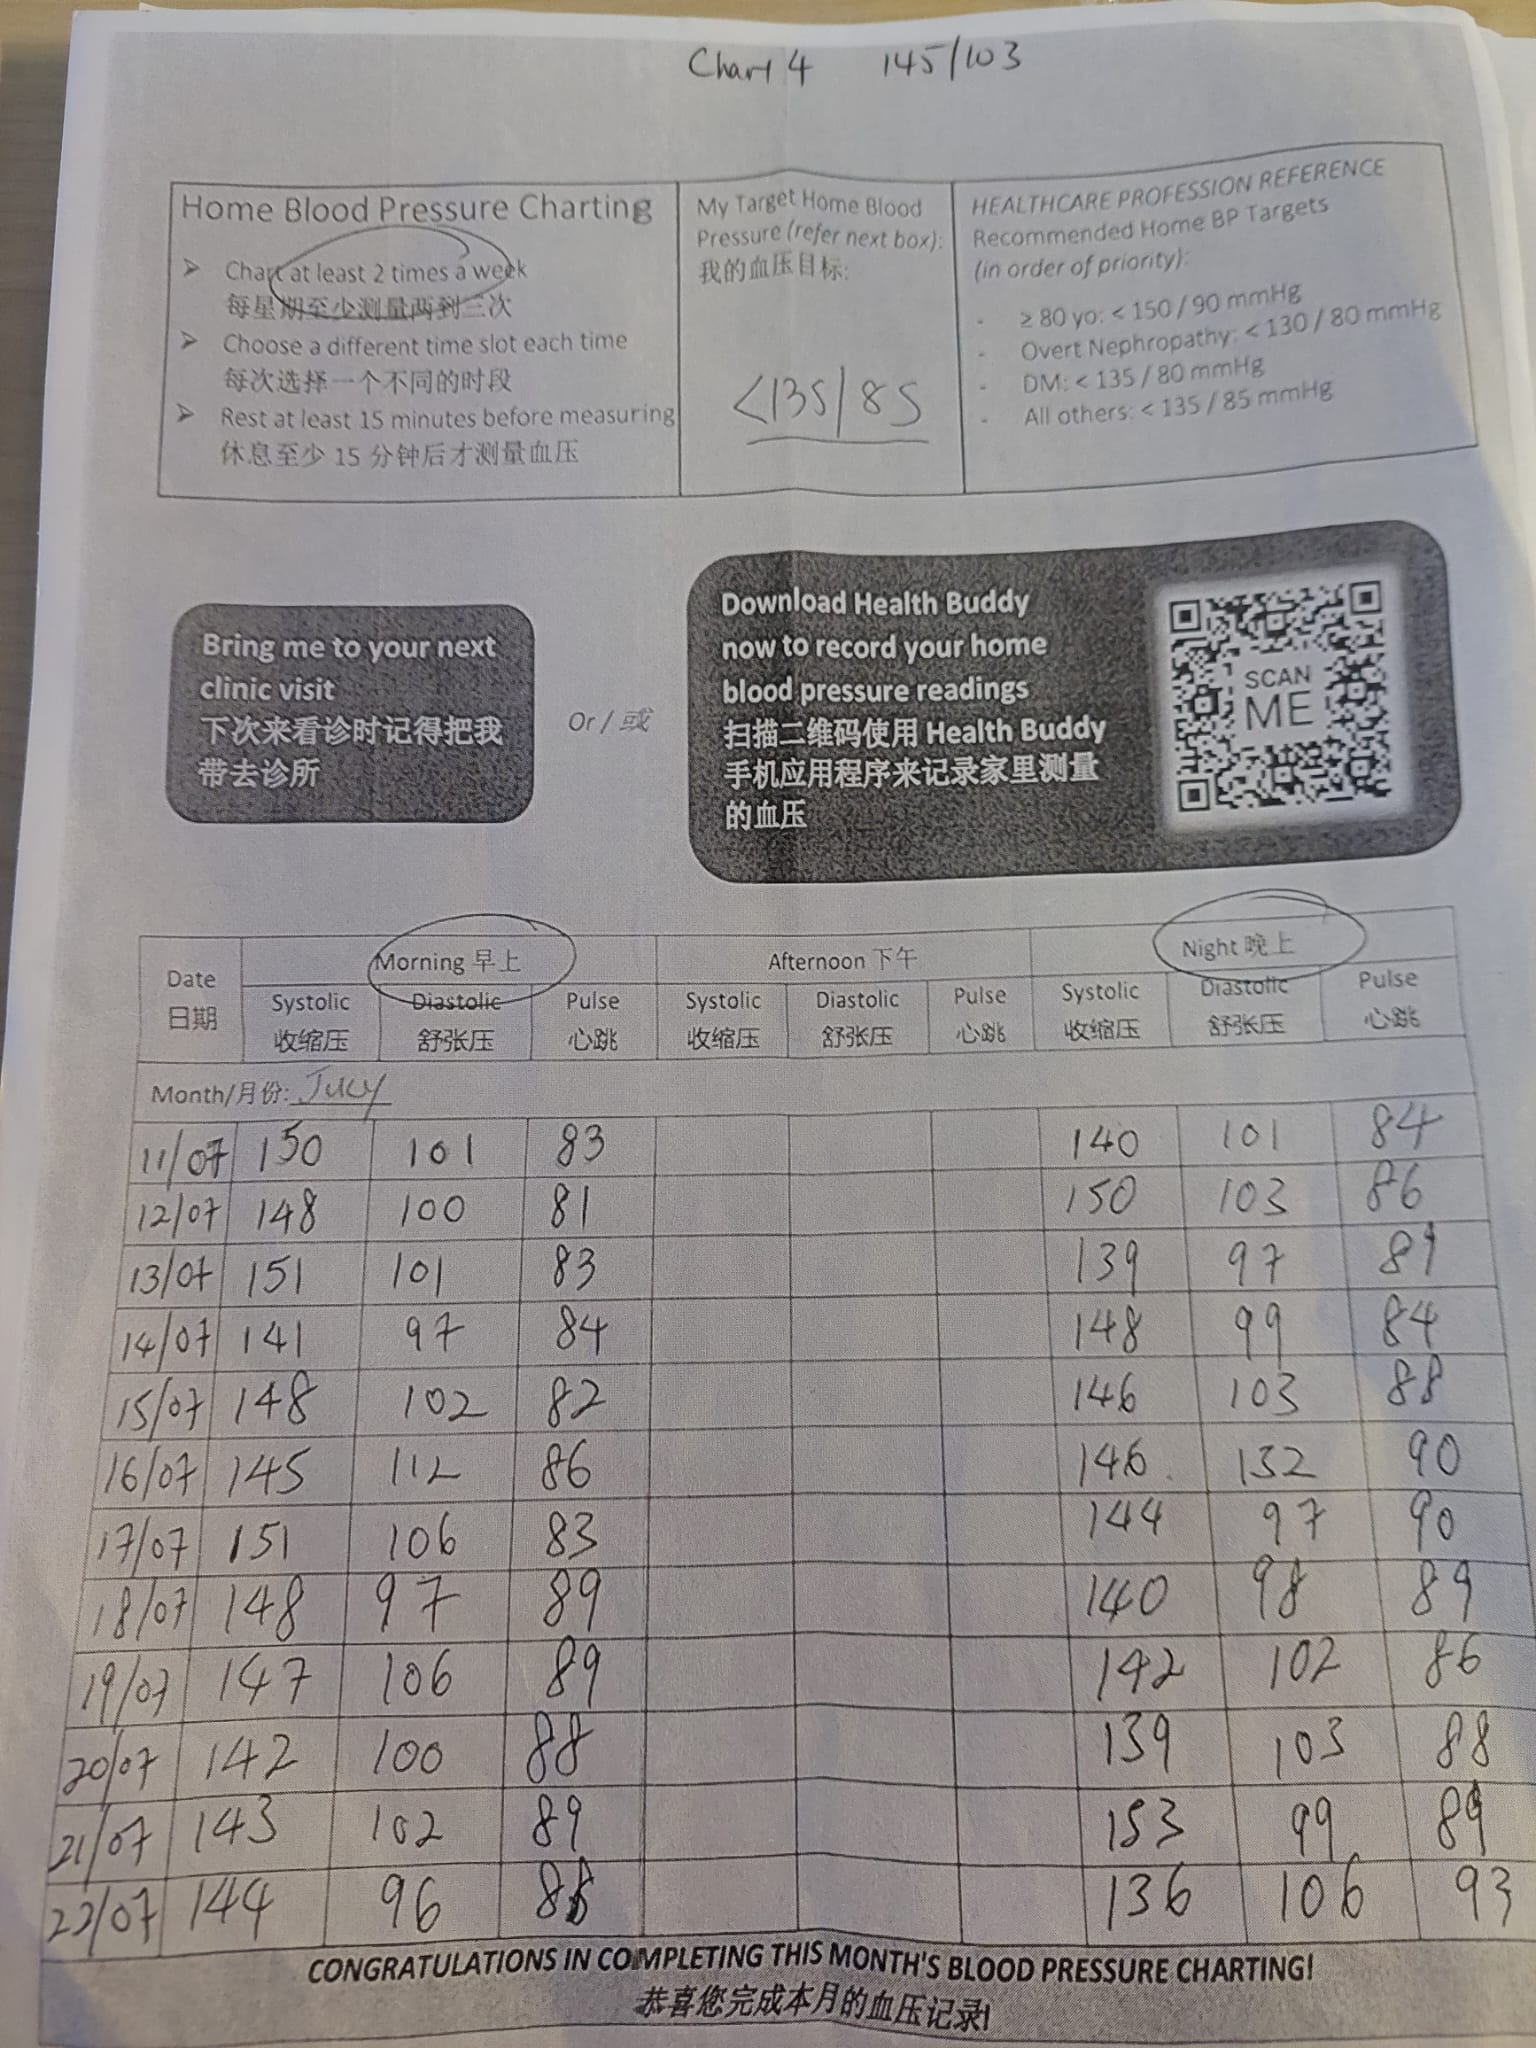 Chart 4 145/103
Home Blood Pressure Charting
➢ Chart at least 2 times a week
每星期至少测量两到三次
➢ Choose a different time slot each time
每次选择一个不同的时段
➢ Rest at least 15 minutes before measuring
休息至少 15 分钟后才测量血压
My Target Home Blood
Pressure (refer next box):
我的血压目标:
<135/85
HEALTHCARE PROFESSION REFERENCE
Recommended Home BP Targets
(in order of priority):
- ≥ 80 yo: < 150 / 90 mmHg
- Overt Nephropathy: < 130 / 80 mmHg
- DM: < 135 / 80 mmHg
- All others: < 135 / 85 mmHg
Bring me to your next
clinic visit
下次来看诊时记得把我
带去诊所
Or / 或
Download Health Buddy
now to record your home
blood pressure readings
扫描二维码使用 Health Buddy
手机应用程序来记录家里测量
的血压
SCAN
ME
Date Morning 早上 Afternoon 下午 Night 晚上
日期 Systolic Diastolic Pulse Systolic Diastolic Pulse Systolic Diastolic Pulse
收缩压 舒张压 心跳 收缩压 舒张压 心跳 收缩压 舒张压 心跳
Month/月份: July
11/07 150 101 83 140 101 84
12/07 148 100 81 150 103 86
13/07 151 101 83 139 97 89
14/07 141 97 84 148 99 84
15/07 148 102 82 146 103 88
16/07 145 112 86 146 132 90
17/07 151 106 83 144 97 90
18/07 148 97 89 140 98 89
19/07 147 106 89 142 102 86
20/07 142 100 88 139 103 88
21/07 143 102 89 153 99 89
22/07 144 96 136 106 93
CONGRATULATIONS IN COMPLETING THIS MONTH'S BLOOD PRESSURE CHARTING!
恭喜您完成本月的血压记录!